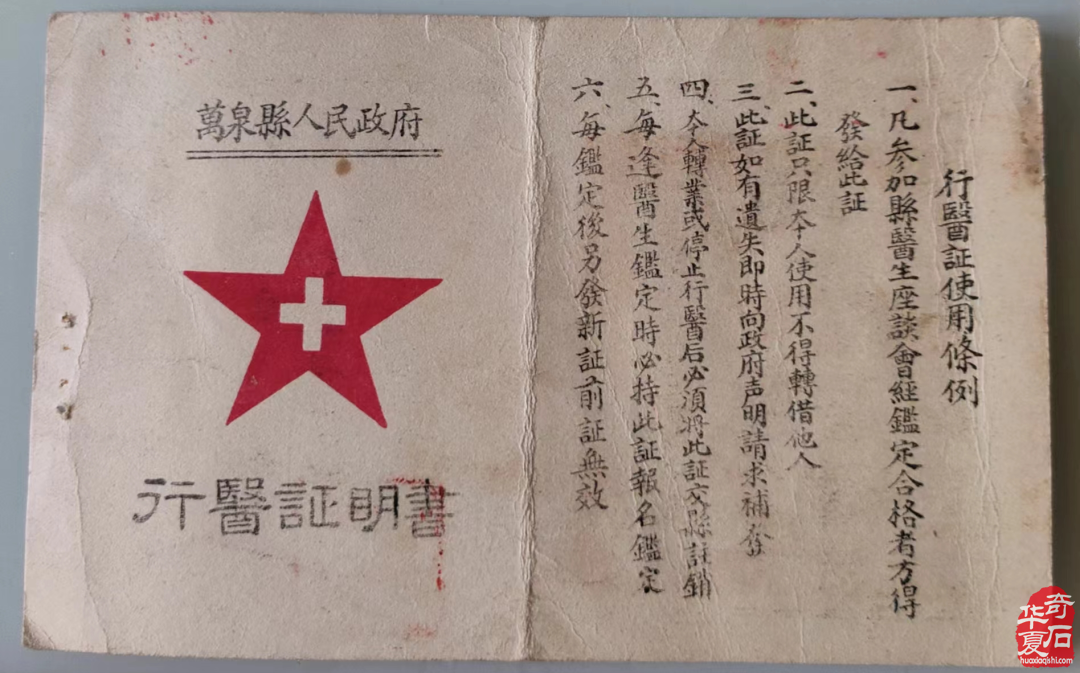 萬泉縣人民政府
行醫証明書
行醫証使用條例
一、凡参加縣醫生座談會経鑑定合格者方得
發給此証
二、此証只限本人使用不得轉借他人
三、此証如有遺失即時向政府声明請求補發
四、本人轉業或停止行醫后必須將此証交縣註銷
五、每逢醫生鑑定時必持此証報名鑑定
六、每鑑定後另發新証前証無效
华夏奇石
huaxiaqishi.com